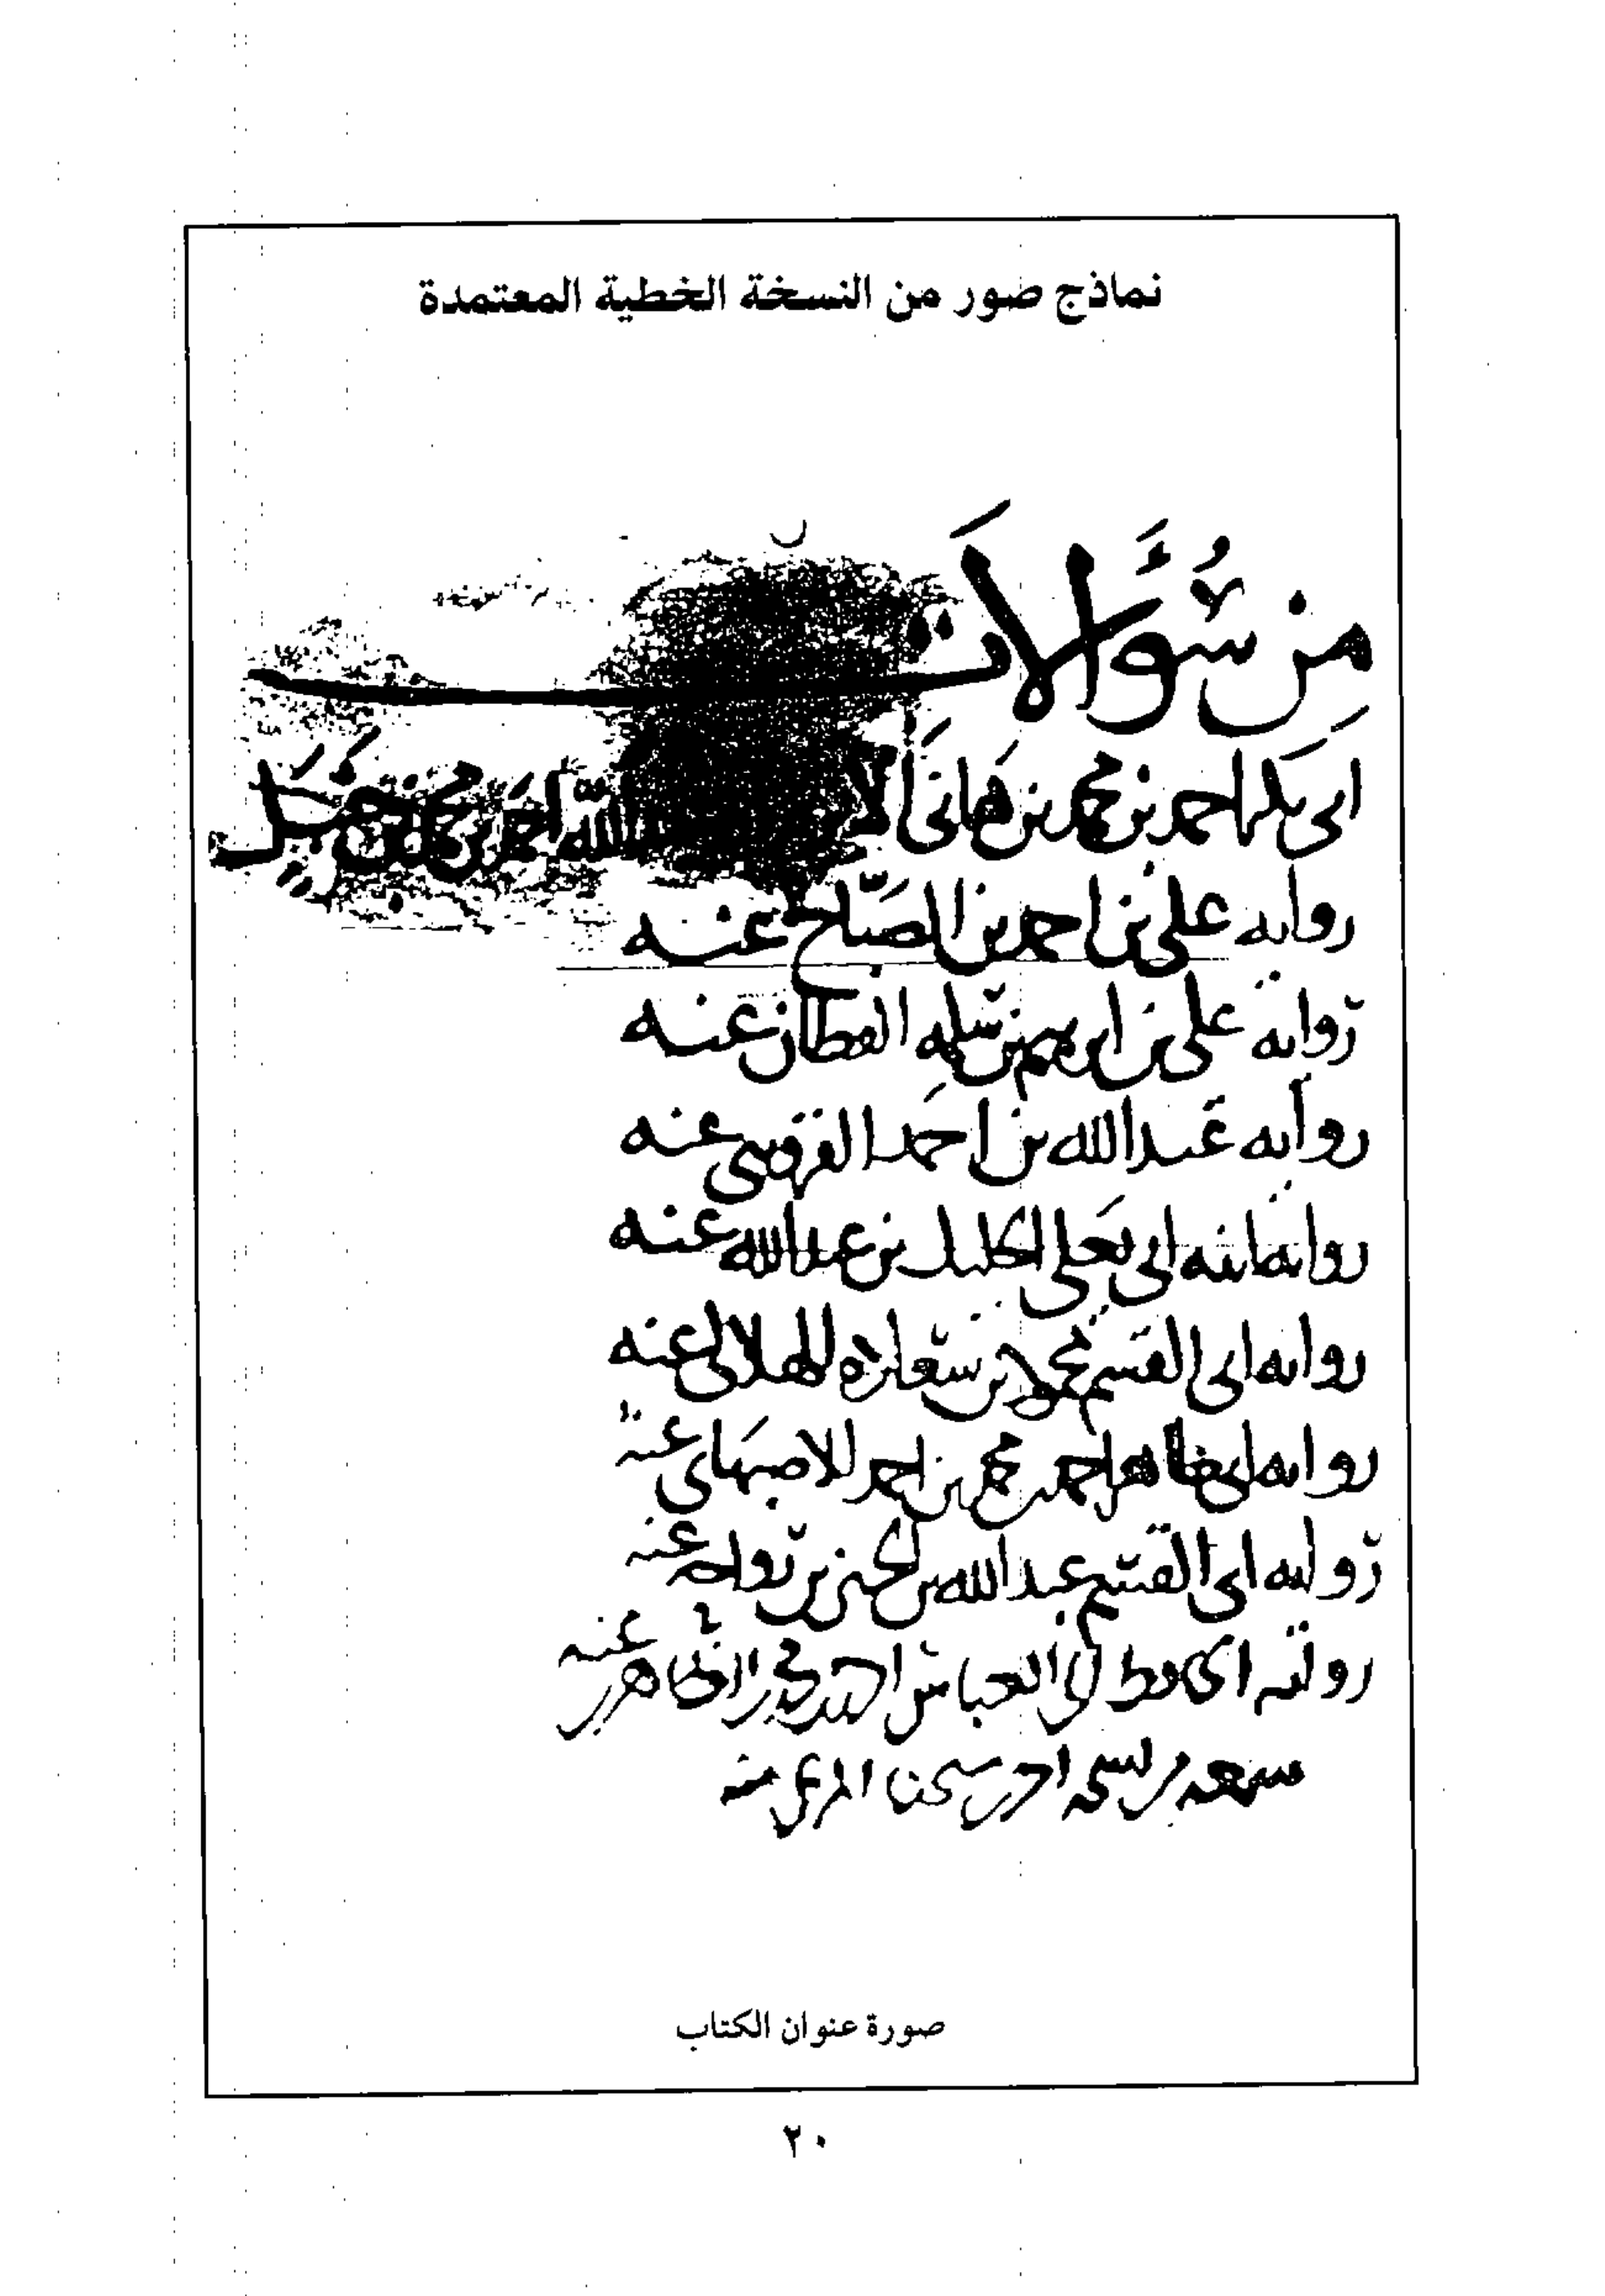 نماذج صور من النسخة الخطية المعتمدة
مِن سُؤَالاَت
ابى بكر احمد بن محمد بن هانى الله احمد بن محمد بن حنبل
روايه على بن احمد بن الصباح عنه
روايه على بن ابرهيم بن سلمه القطان عنه
روايه عبد الله بن احمد عنه
روايه ابنه ابى يعلى الخليل بن عبد الله عنه
روايه ابى القسم محمود بن سعاده الهلالى عنه
روايه ابى طاهر احمد بن محمد بن احمد الاصبهانى عنه
روايه ابى الفتح عبد الله بن الحسين بن رواحه عنه
روايه ابى العباس احمد بن محمد الظاهرى عنه
سمعه
صورة عنوان الكتاب
٢٠